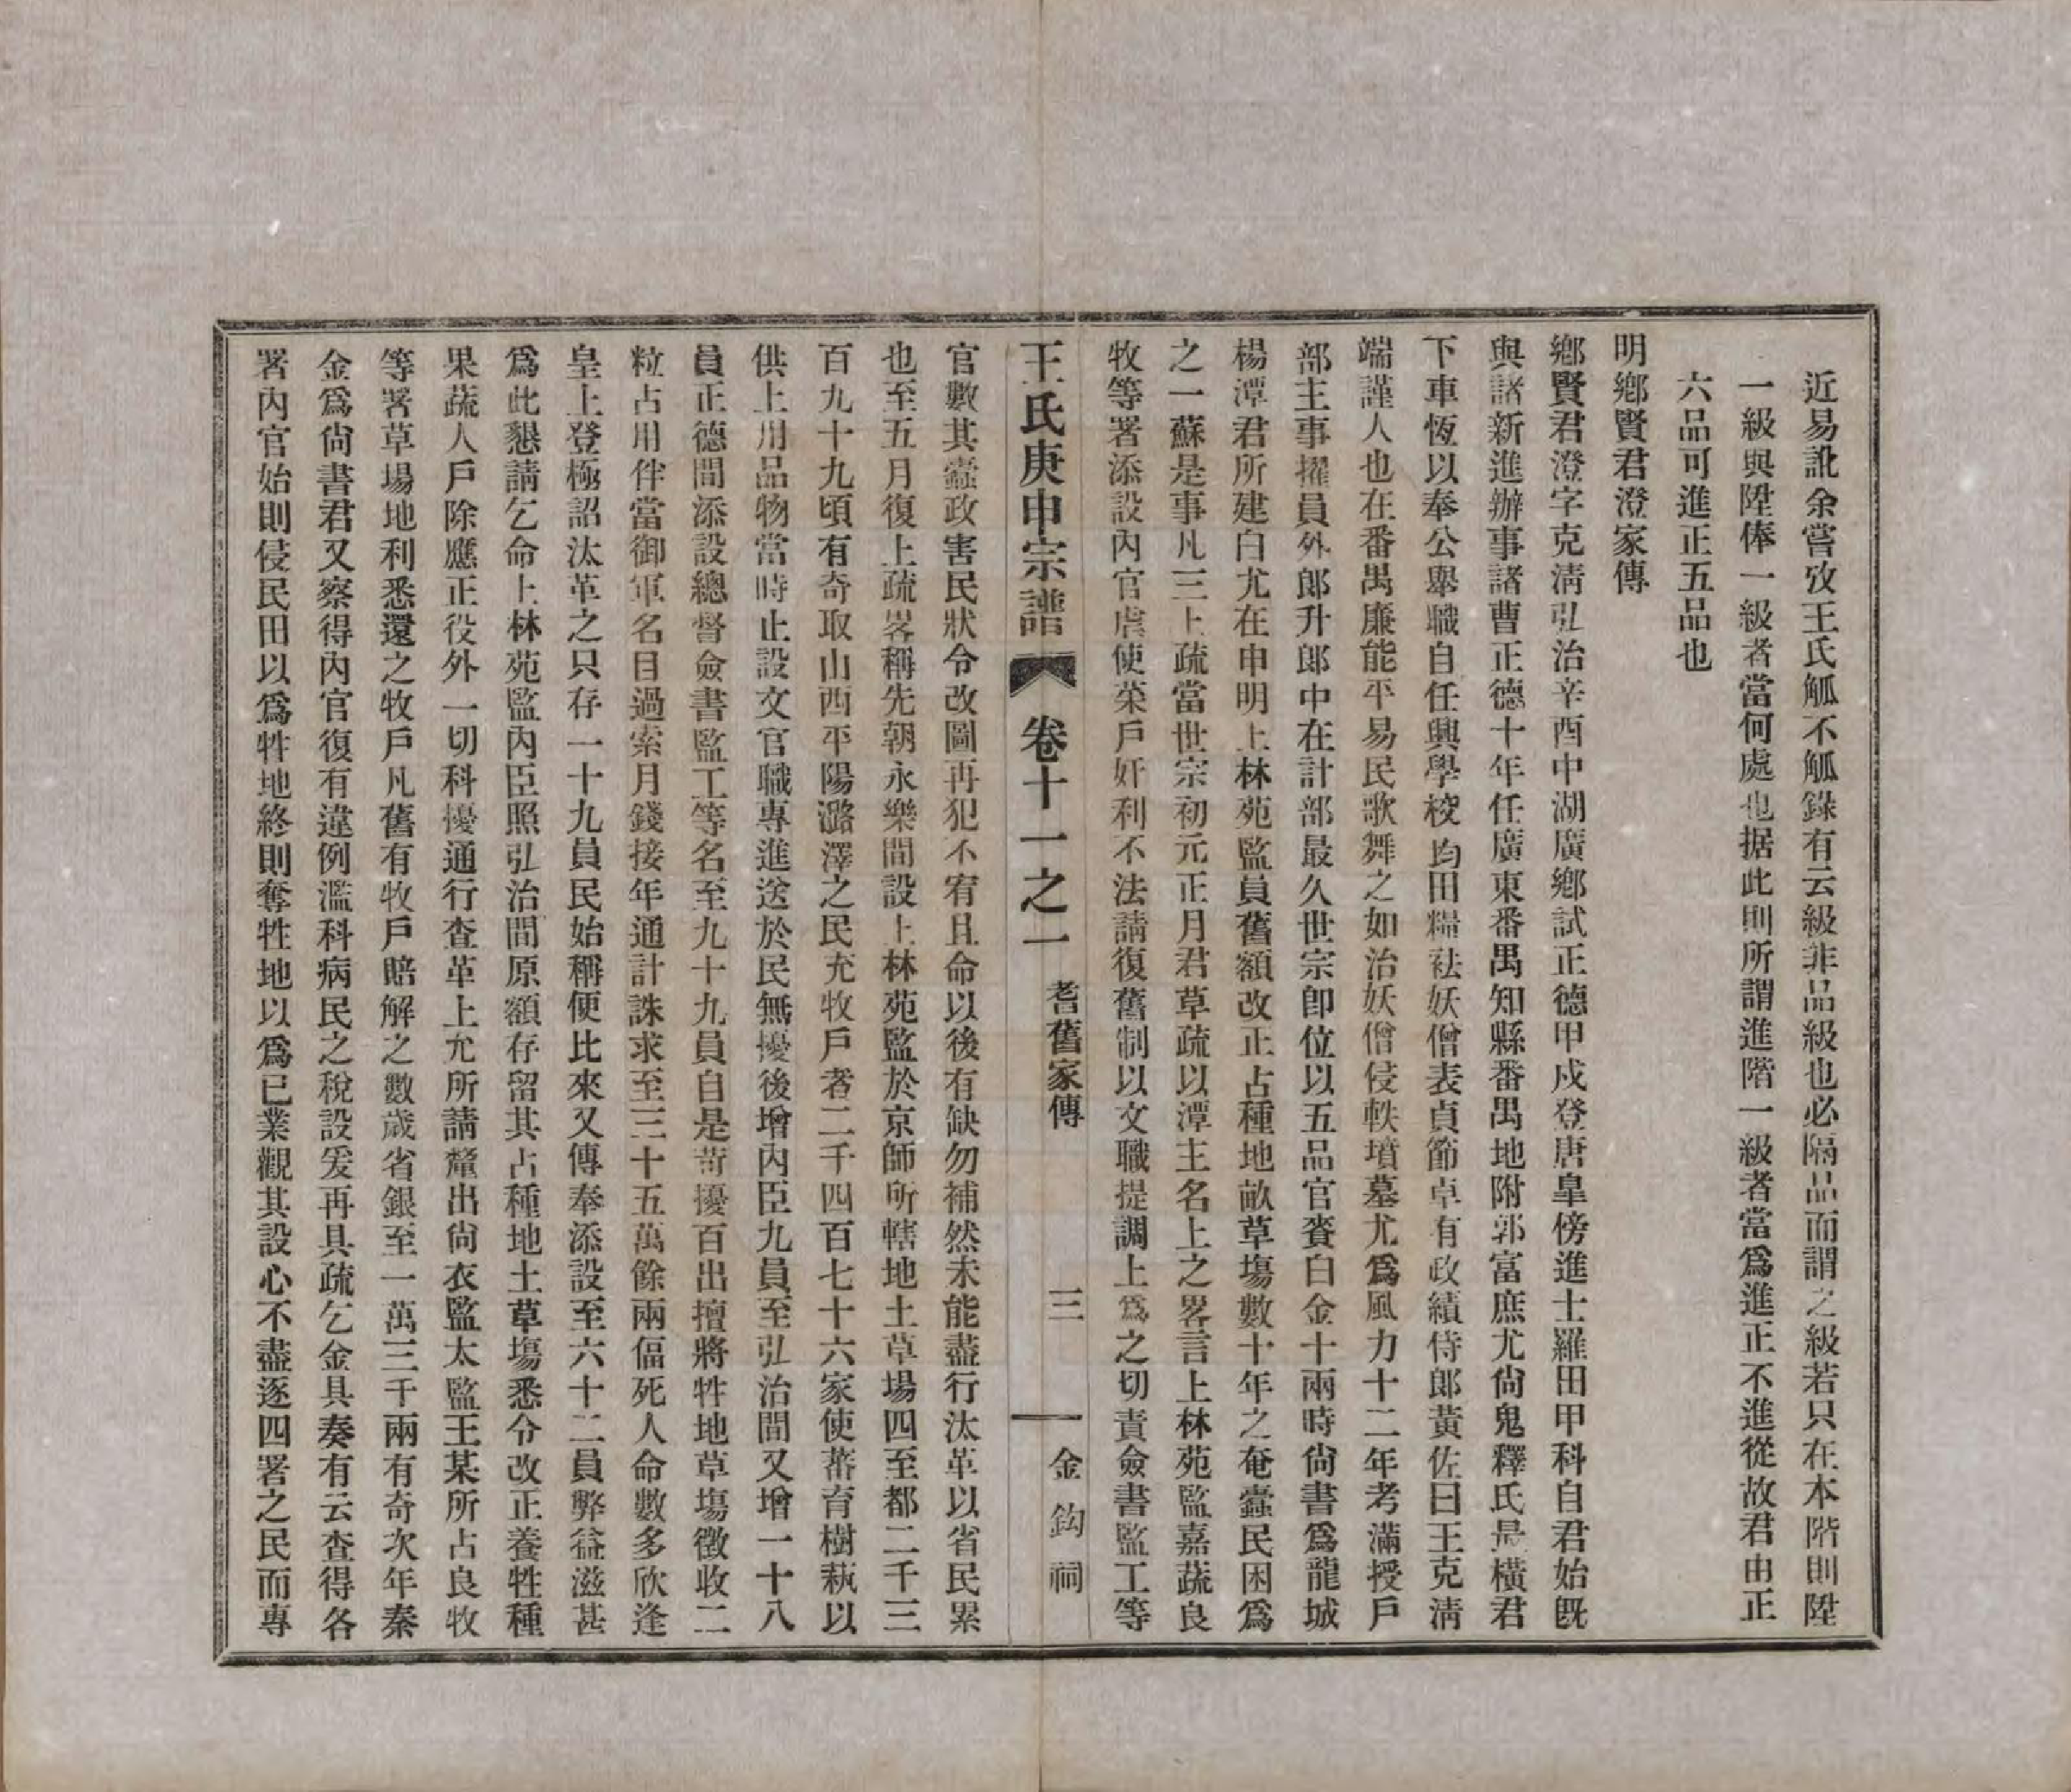 近易訛余嘗攷王氏觚不觚錄有云級非品級也必隔品而謂之級若只在本階則陞
一級與陞俸一級者當何處也据此則所謂進階一級者當爲進正不進從故君由正
六品可進正五品也
明鄉賢君澄家傳
鄉賢君澄字克淸弘治辛酉中湖廣鄉試正德甲戍登唐皐傍進士羅田甲科自君始旣
與諸新進辦事諸曹正德十年任廣東番禺知縣番禺地附郭富庶尤尙鬼釋氏最橫君
下車恆以奉公舉職自任興學校均田糧袪妖僧表貞節卓有政績侍郎黃佐曰王克淸
端謹人也在番禺廉能平易民歌舞之如治妖僧侵軼墳墓尤爲風力十二年考滿授戶
部主事擢員外郎升郎中在計部最久世宗卽位以五品官賚白金十兩時尙書爲龍城
楊潭君所建白尤在申明上林苑監員舊額改正占種地畝草塲數十年之奄蠹民困爲
之一蘇是事凡三上疏當世宗初元正月君草疏以潭主名上之畧言上林苑監嘉蔬良
牧等署添設內官虐使菜戶奸利不法請復舊制以文職提調上爲之切責僉書監工等
王氏庚申宗譜 卷十一之一 耆舊家傳 三 金鈎祠
官數其蠹政害民狀令改圖再犯不宥且命以後有缺勿補然未能盡行汰革以省民累
也至五月復上疏畧稱先朝永樂間設上林苑監於京師所轄地土草場四至都二千三
百九十九頃有奇取山西平陽潞澤之民充牧戶者二千四百七十六家使蕃育樹蓺以
供上用品物當時止設文官職專進送於民無擾後增內臣九員至弘治間又增一十八
員正德間添設總督僉書監工等名至九十九員自是苛擾百出擅將牲地草塲徵收二
粒占用伴當御軍名目過索月錢接年通計誅求至三十五萬餘兩偪死人命數多欣逢
皇上登極詔汰革之只存一十九員民始稱便比來又傳奉添設至六十二員弊益滋甚
爲此懇請乞命上林苑監內臣照弘治間原額存留其占種地土草塲悉令改正養牲種
果蔬人戶除應正役外一切科擾通行查革上允所請釐出尙衣監太監王某所占良牧
等署草場地利悉還之牧戶凡舊有牧戶賠解之數歲省銀至一萬三千兩有奇次年秦
金爲尙書君又察得內官復有違例濫科病民之稅設爰再具疏乞金具奏有云查得各
署內官始則侵民田以爲牲地終則奪牲地以爲已業觀其設心不盡逐四署之民而專